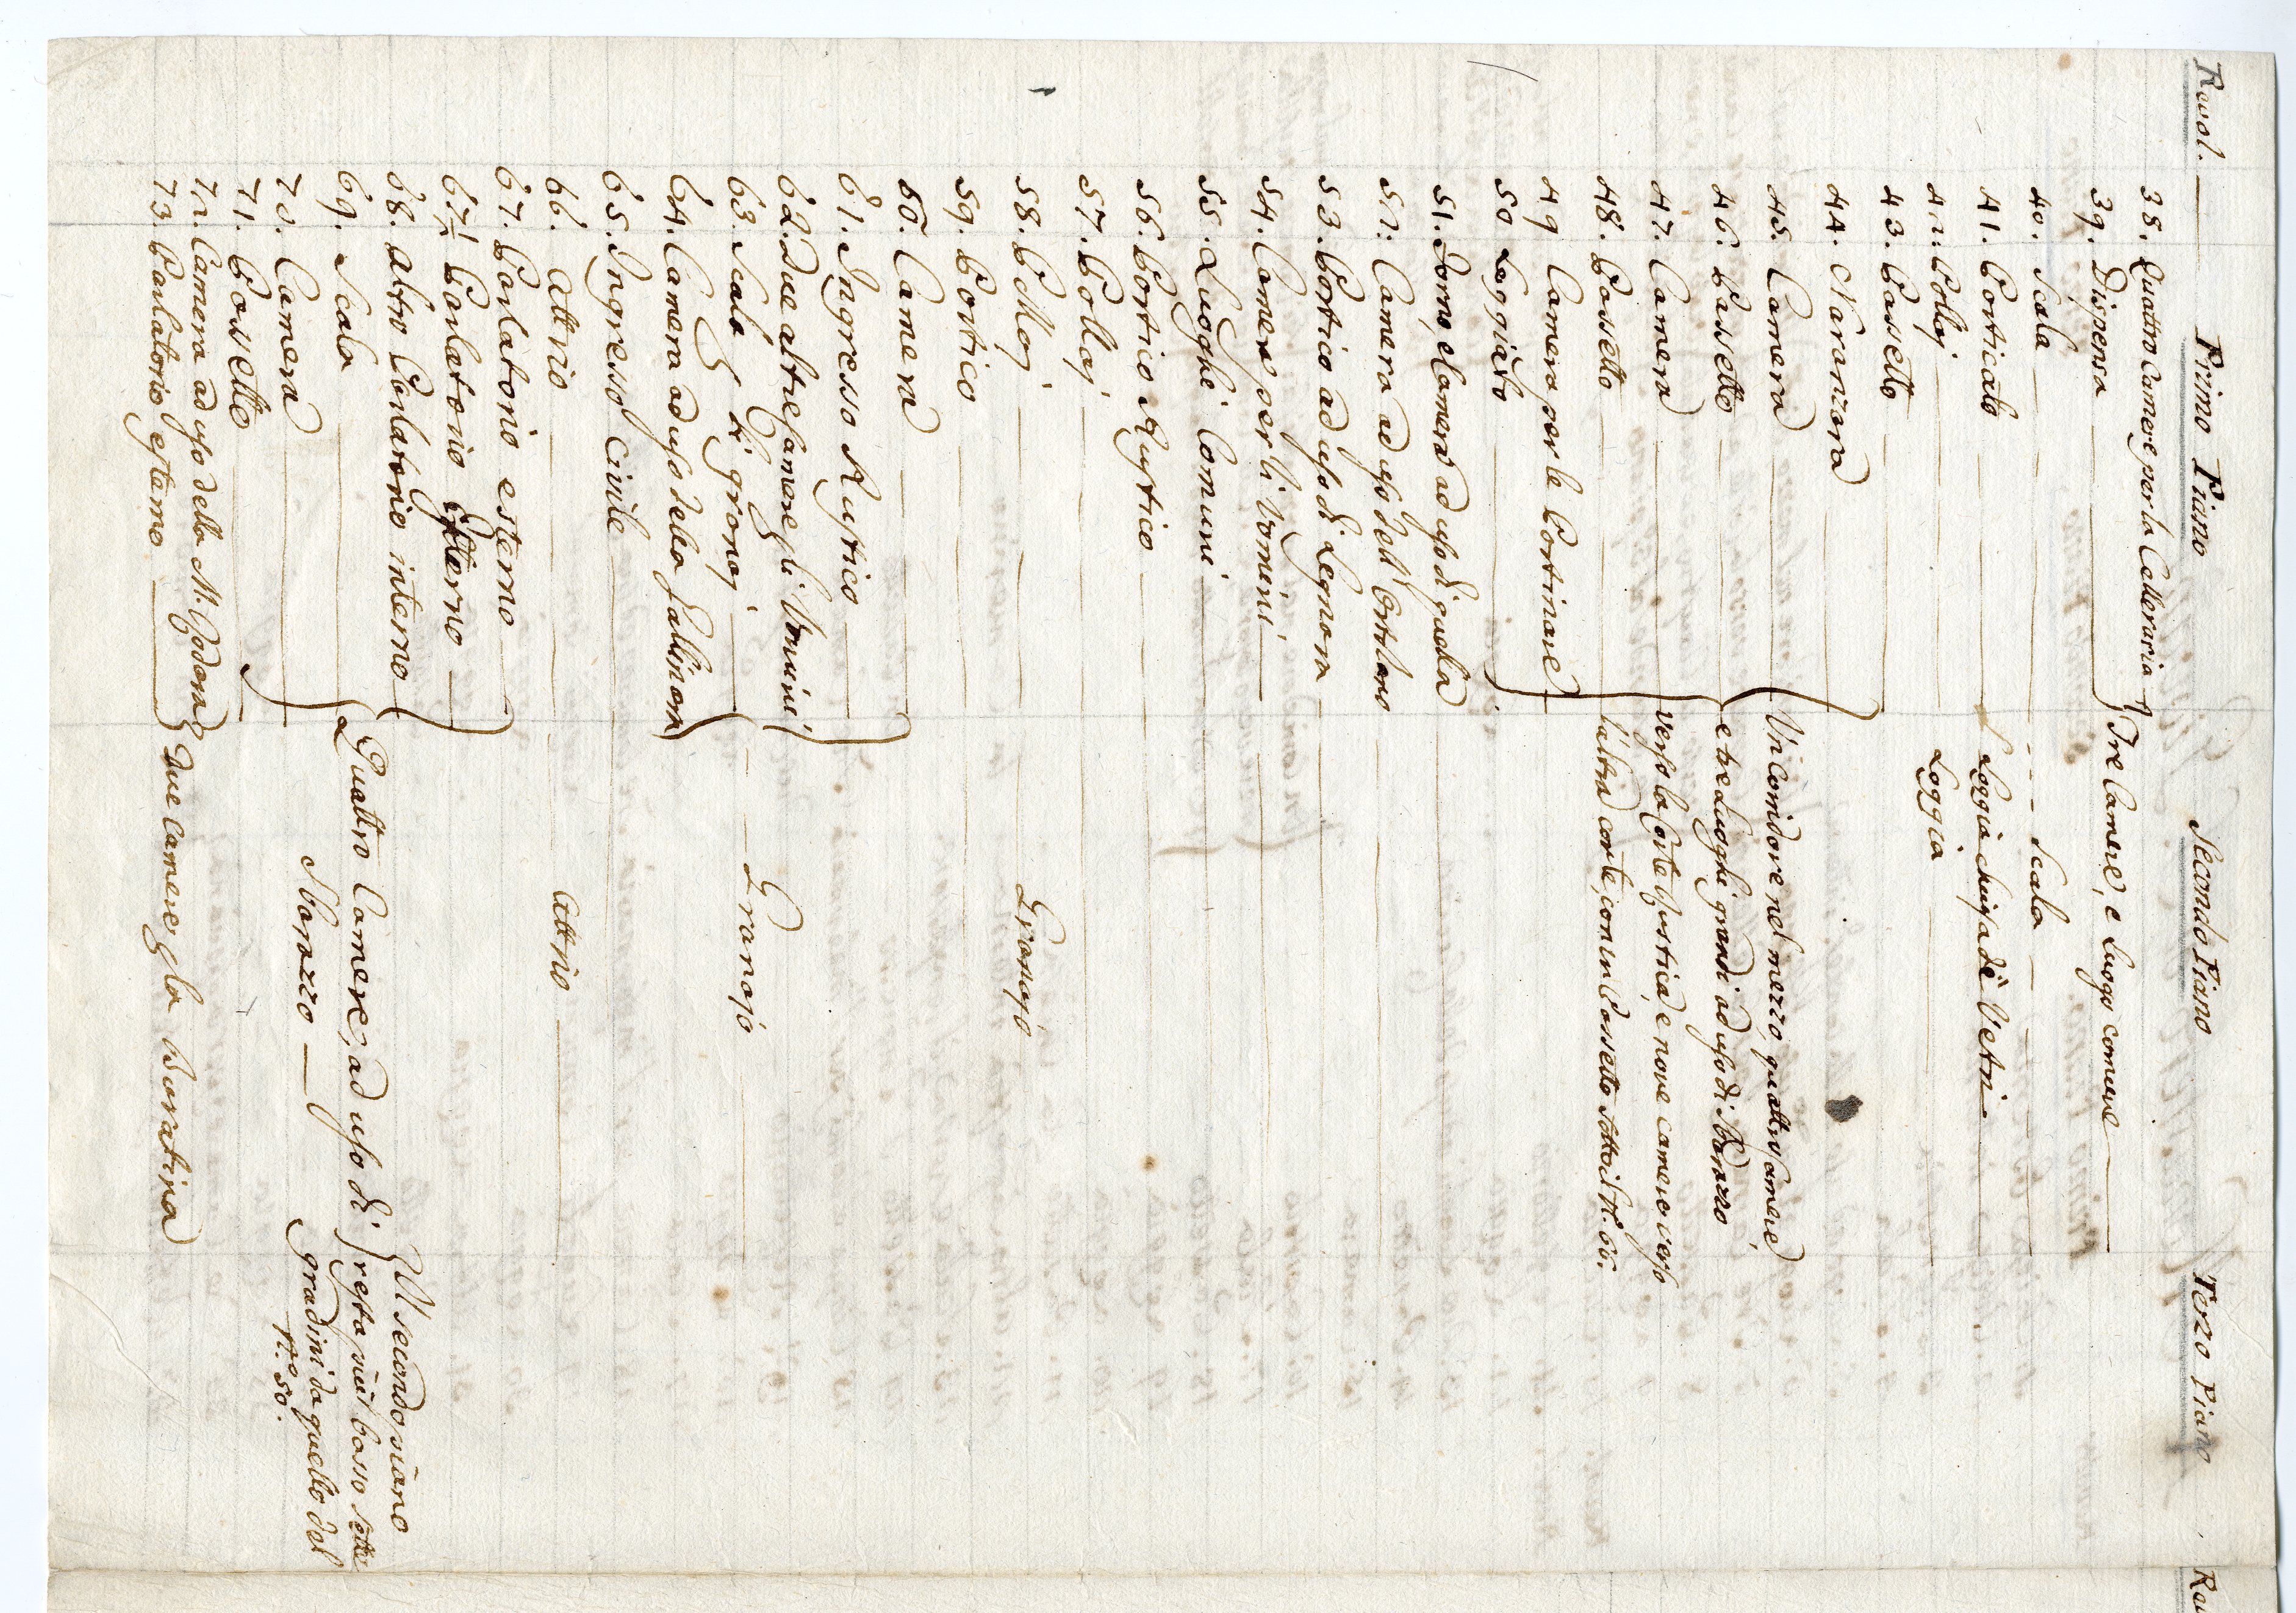 Ravol. Primo Piano Secondo Piano Terzo Piano
38. Quattro Camere per la Celleraria
39. Dispensa
Tre Camere, e luogo comune
40. Scala Scala
41. Porticato Loggia chiusa di Vetri
42. Pollaj Loggia
43. Passetto
44. Naranzara
45. Camera
46. Passetto
47. Camera
48. Passetto
49 Camera per le Portinare
50 Loggiato
Un Corridore nel mezzo, quattro Camere,
e tre Luoghi grandi ad uso di Sbarazzo
verso la Corte Rustica, e nove camere verso
l'altra corte, con un Passetto sotto il N. 66.
51. Forno, e Camera ad uso di quella
52. Camera ad uso dell' Ortolano
53. Portico ad uso di Legnara
54. Camere per li Uomini
55. Luoghi Comuni
56. Portico Rustico
57. Pollaj
58. Pollaj Granajo
59. Portico
60. Camera
61. Ingresso Rustico
62. Due altre Camere p li Uomini
63. Scala p li granaj
64. Camera ad uso della Gallinara
Granajo
65. Ingresso Civile
66. Attrio Attrio
67. Parlatorio esterno
67½ Parlatorio esterno
68. Altro Parlatorio interno
69. Scala
70. Camera
71. Passetto
Quattro Camere, ad uso di
Sbarazzo
Il secondo piano
resta più basso sette
gradini da quello del
N.º 50.
72. Camera ad uso della M.
73. Parlatorio esterno
Due Camere p la Buratina